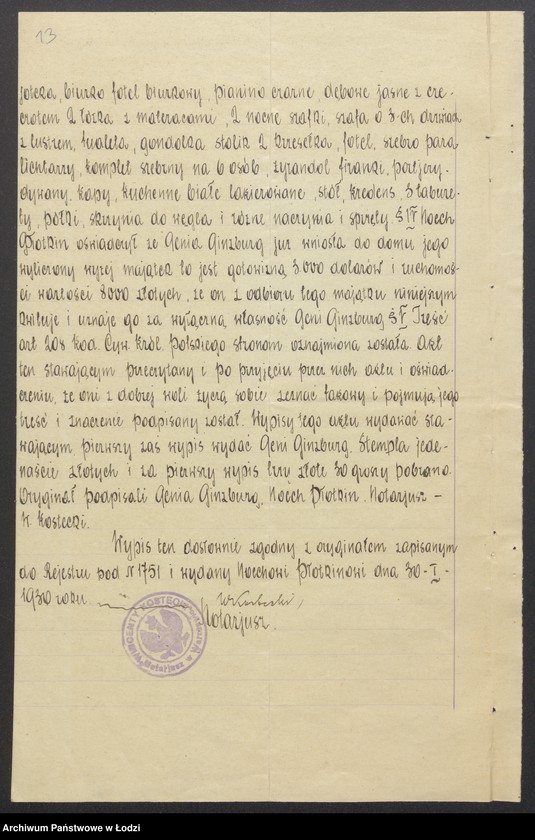 13
joteka, biurko fotel biurkowy, pianino czarne, dębowe jasne z cre-
crotem 2 łóżka z materacami, 2 nocne szafki, szafa o 3-ch drzwiach
z lustrem, tualeta, gondolka stolik 2 krzesełka, fotel, srebro para
lichtarzy, komplet srebrny na 6 osób, żyrandol firanki, portjery,
dywany, kapy, kuchenne białe lakierowane, stół, kredens, 3 tabure-
ty, półki, skrzynia do węgla i różne naczynia i sprzęty. § IV Noech
Płotkin oświadczył że Genia Ginzburg już wniosła do domu jego
wyliczony wyżej majątek to jest gotowizną 3.000 dolarów i ruchomoś-
ci wartości 8000 złotych, że on z odbioru tego majątku niniejszym
kwituje i uznaje go za wyłączną własność Geni Ginzburg. § V Treść
art 208 kod. Cyw. Król. Polskiego stronom oznajmiona została. Akt
ten stawającym przeczytany i po przyjęciu przez nich aktu i oświad-
czeniu, że oni z dobrej woli życzą sobie zeznać takowy i pojmują jego
treść i znaczenie podpisany został. Wypisy tego aktu wydawać sta-
wającym pierwszy zaś wypis wydać Geni Ginzburg. Stempla jede-
naście złotych i za pierwszy wypis trzy złote 30 groszy pobrano.
Oryginał podpisali Genia Ginzburg, Noech Płotkin. Notarjusz -
W. Kostecki.
Wypis ten dosłownie zgodny z oryginałem zapisanym
do Rejestru pod N 1751 i wydany Noechowi Płotkinowi dnia 30 - I -
- 1930 roku.
W Kostecki
Notarjusz.
WINCENTY KOSTECKI
Notarjusz w Warszawie
Archiwum Państwowe w Łodzi